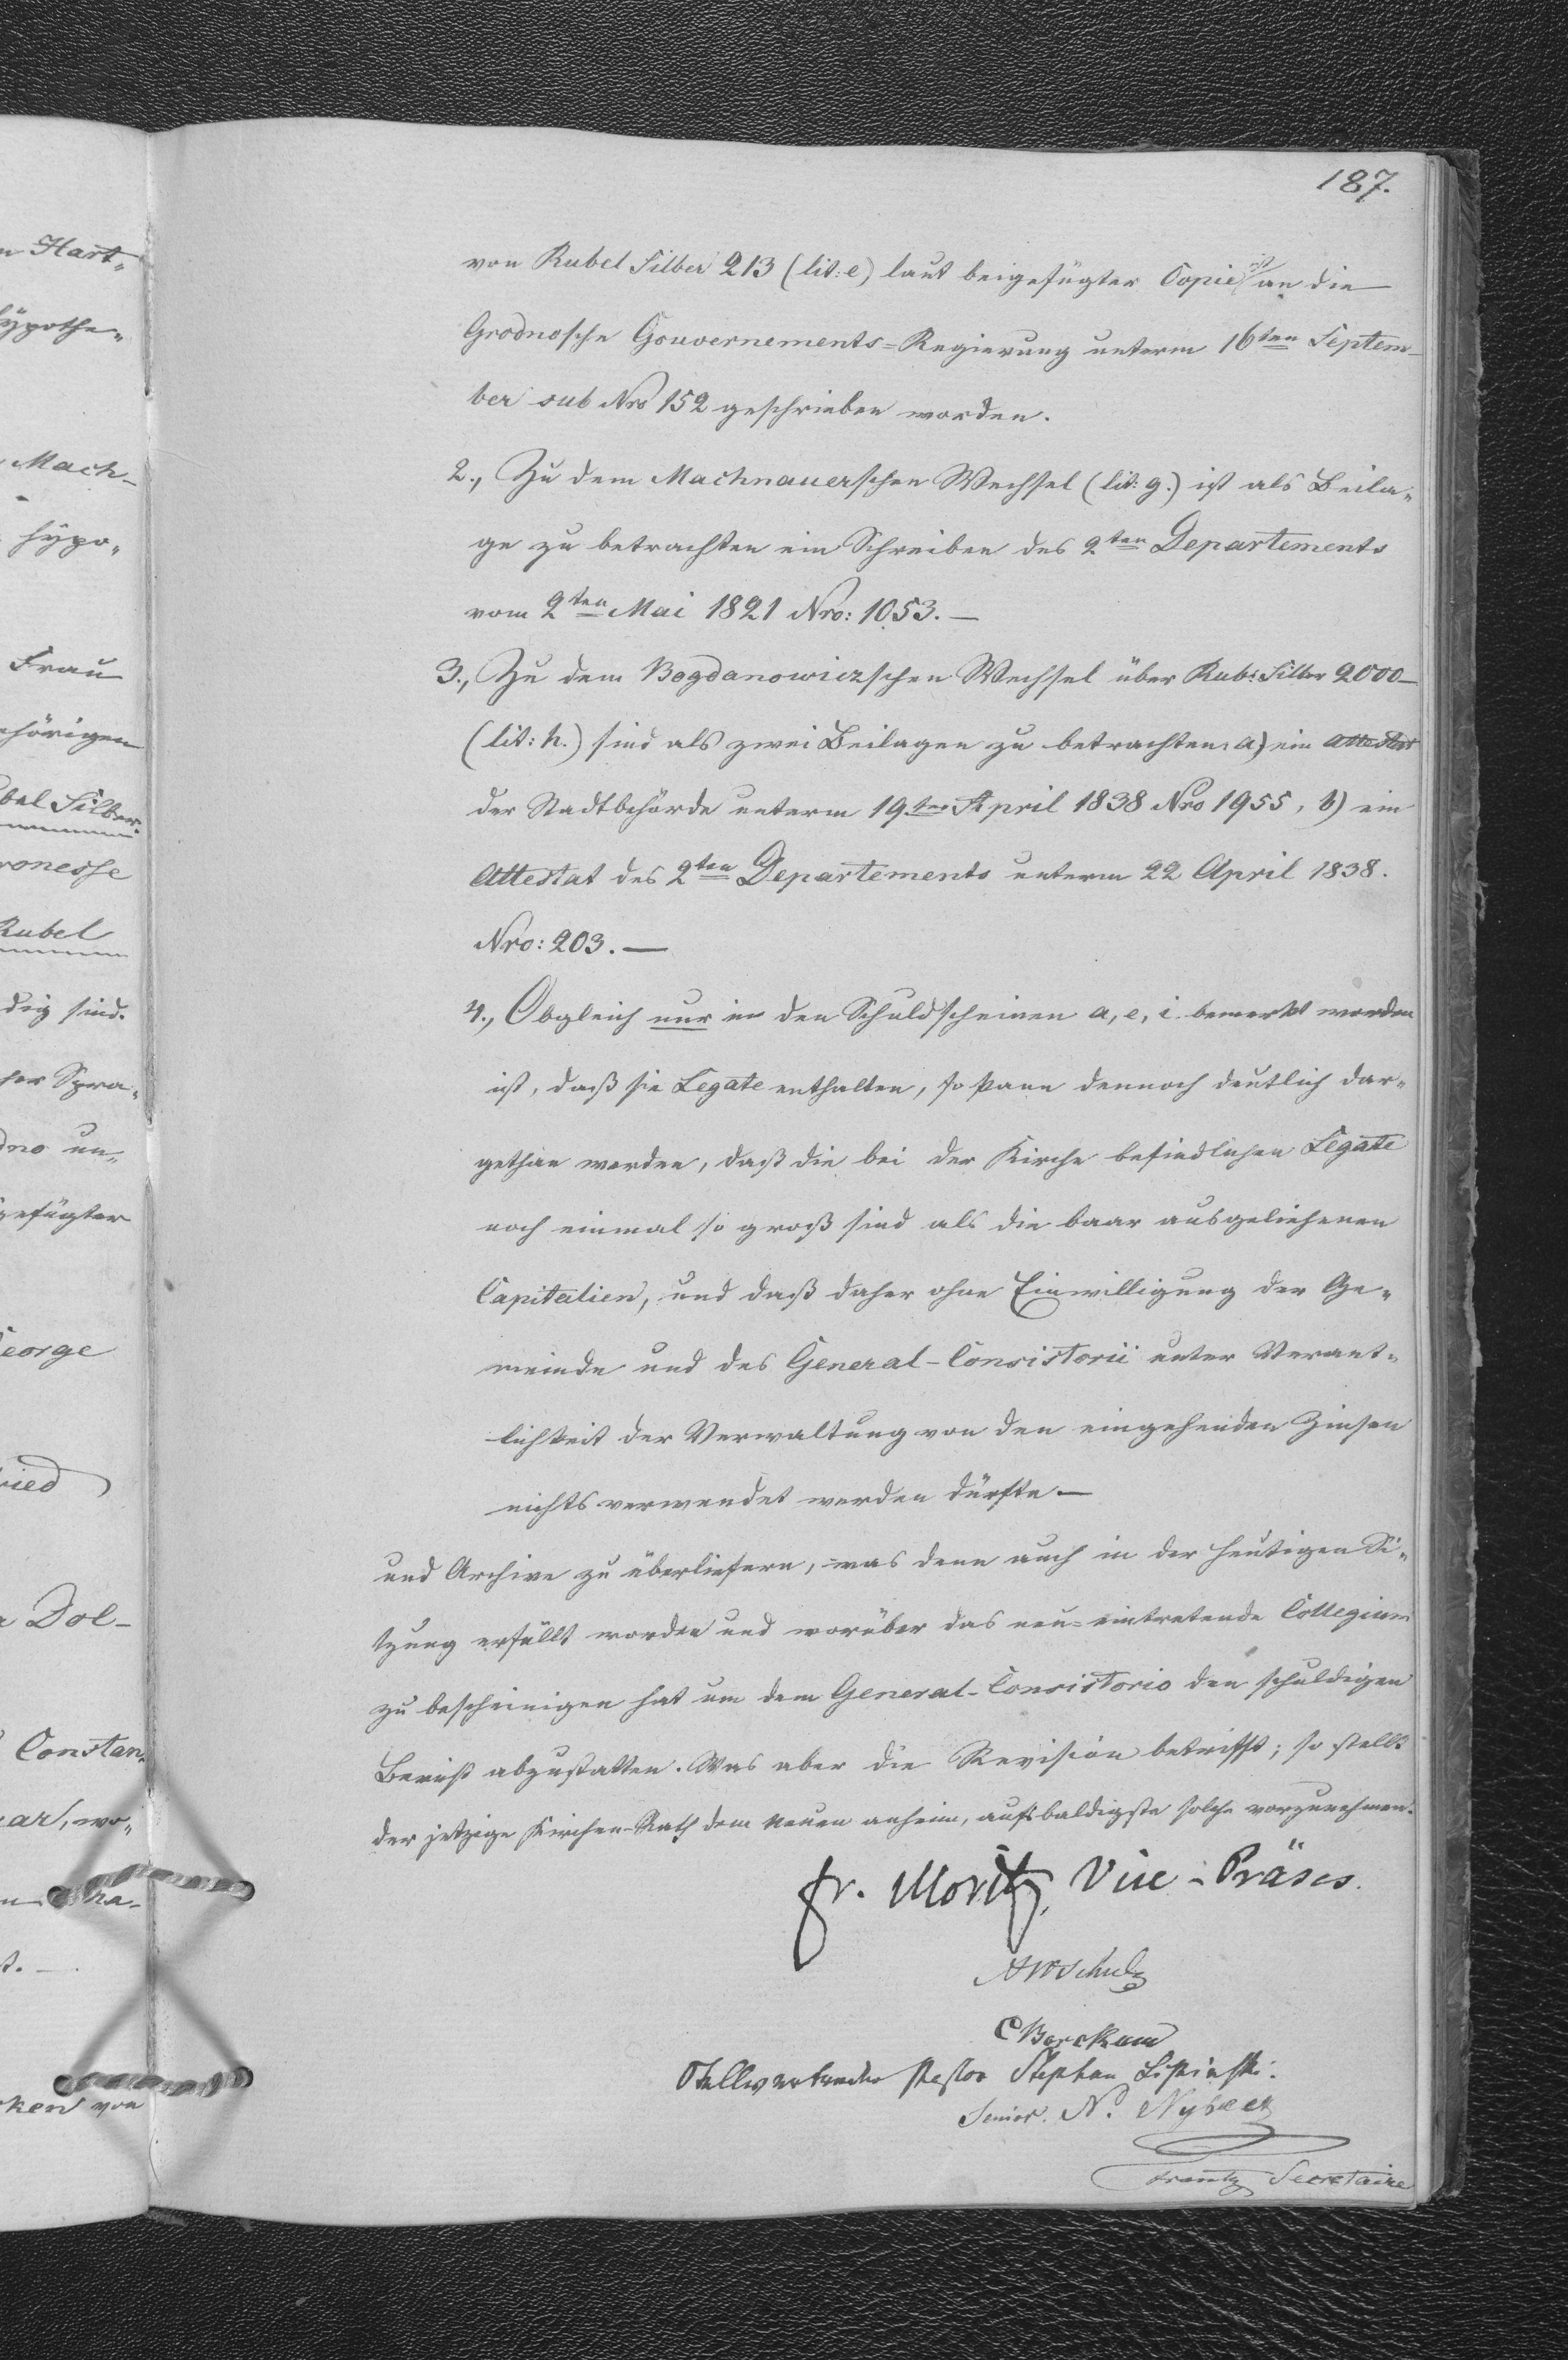 187.
von Rubel Silber 213 (lit: e) laut beigefügter Copie ist an die
Grodnosche Gouvernements-Regierung unterm 16ten Septem-
ber sub Nro 152 geschrieben worden.
2., Zu dem Machnauerschen Wechsel (lit: g.) ist als Beila-
ge zu betrachten ein Schreiben des 2ten Departements
vom 2ten Mai 1821 Nro: 1053. —
3., Zu dem Bogdanowiczschen Wechsel über Rub: Silber 2000 —
(lit: h.) sind als zwei Beilagen zu betrachten: a) ein Attestat
der Stadtbehörde unterm 19ten April 1838 Nro 1955, b) ein
Attestat des 2ten Departements unterm 22 April 1838.
Nro: 203. —
4., Obgleich nur in den Schuldscheinen a, e, i. bemerkt worden
ist, daß sie Legate enthalten, so kann dennoch deutlich dar-
gethan werden, daß die bei der Kirche befindlichen Legate
noch einmal so groß sind als die baar ausgeliehenen
Capitalien, und daß daher ohne Einwilligung der Ge-
meinde und des General-Consistorii unter Verant-
lichkeit der Verwaltung von den eingehenden Zinsen
nichts verwendet werden dürfte —
und Archive zu überliefern, was denn auch in der heutigen Si-
tzung erfüllt worden und worüber das neu-eintretende Collegium
zu bescheinigen hat um dem General-Consistorio den schuldigen
Bericht abzustatten. Was aber die Revision betrifft; so stellt
der jetzige Kirchen-Rath dem neuen anheim, aufs baldigste solche vorzunehmen.
Fr. Moritz, Vice-Präses.
A W Schulz
C Borckum
Stellvertreter Pastor Stephan Lipinski.
Senior. N.
Frantz Secretaire
n Hart-
hypothe-
Mach-
hypo-
Frau
ehörigen
bel Silber.
ronesse
Rubel
dig sind.
her Spra-
dno un-
gefügter
George
ried
n Dol-
Constan-
ar, wo-
ha-
st. —
ken von